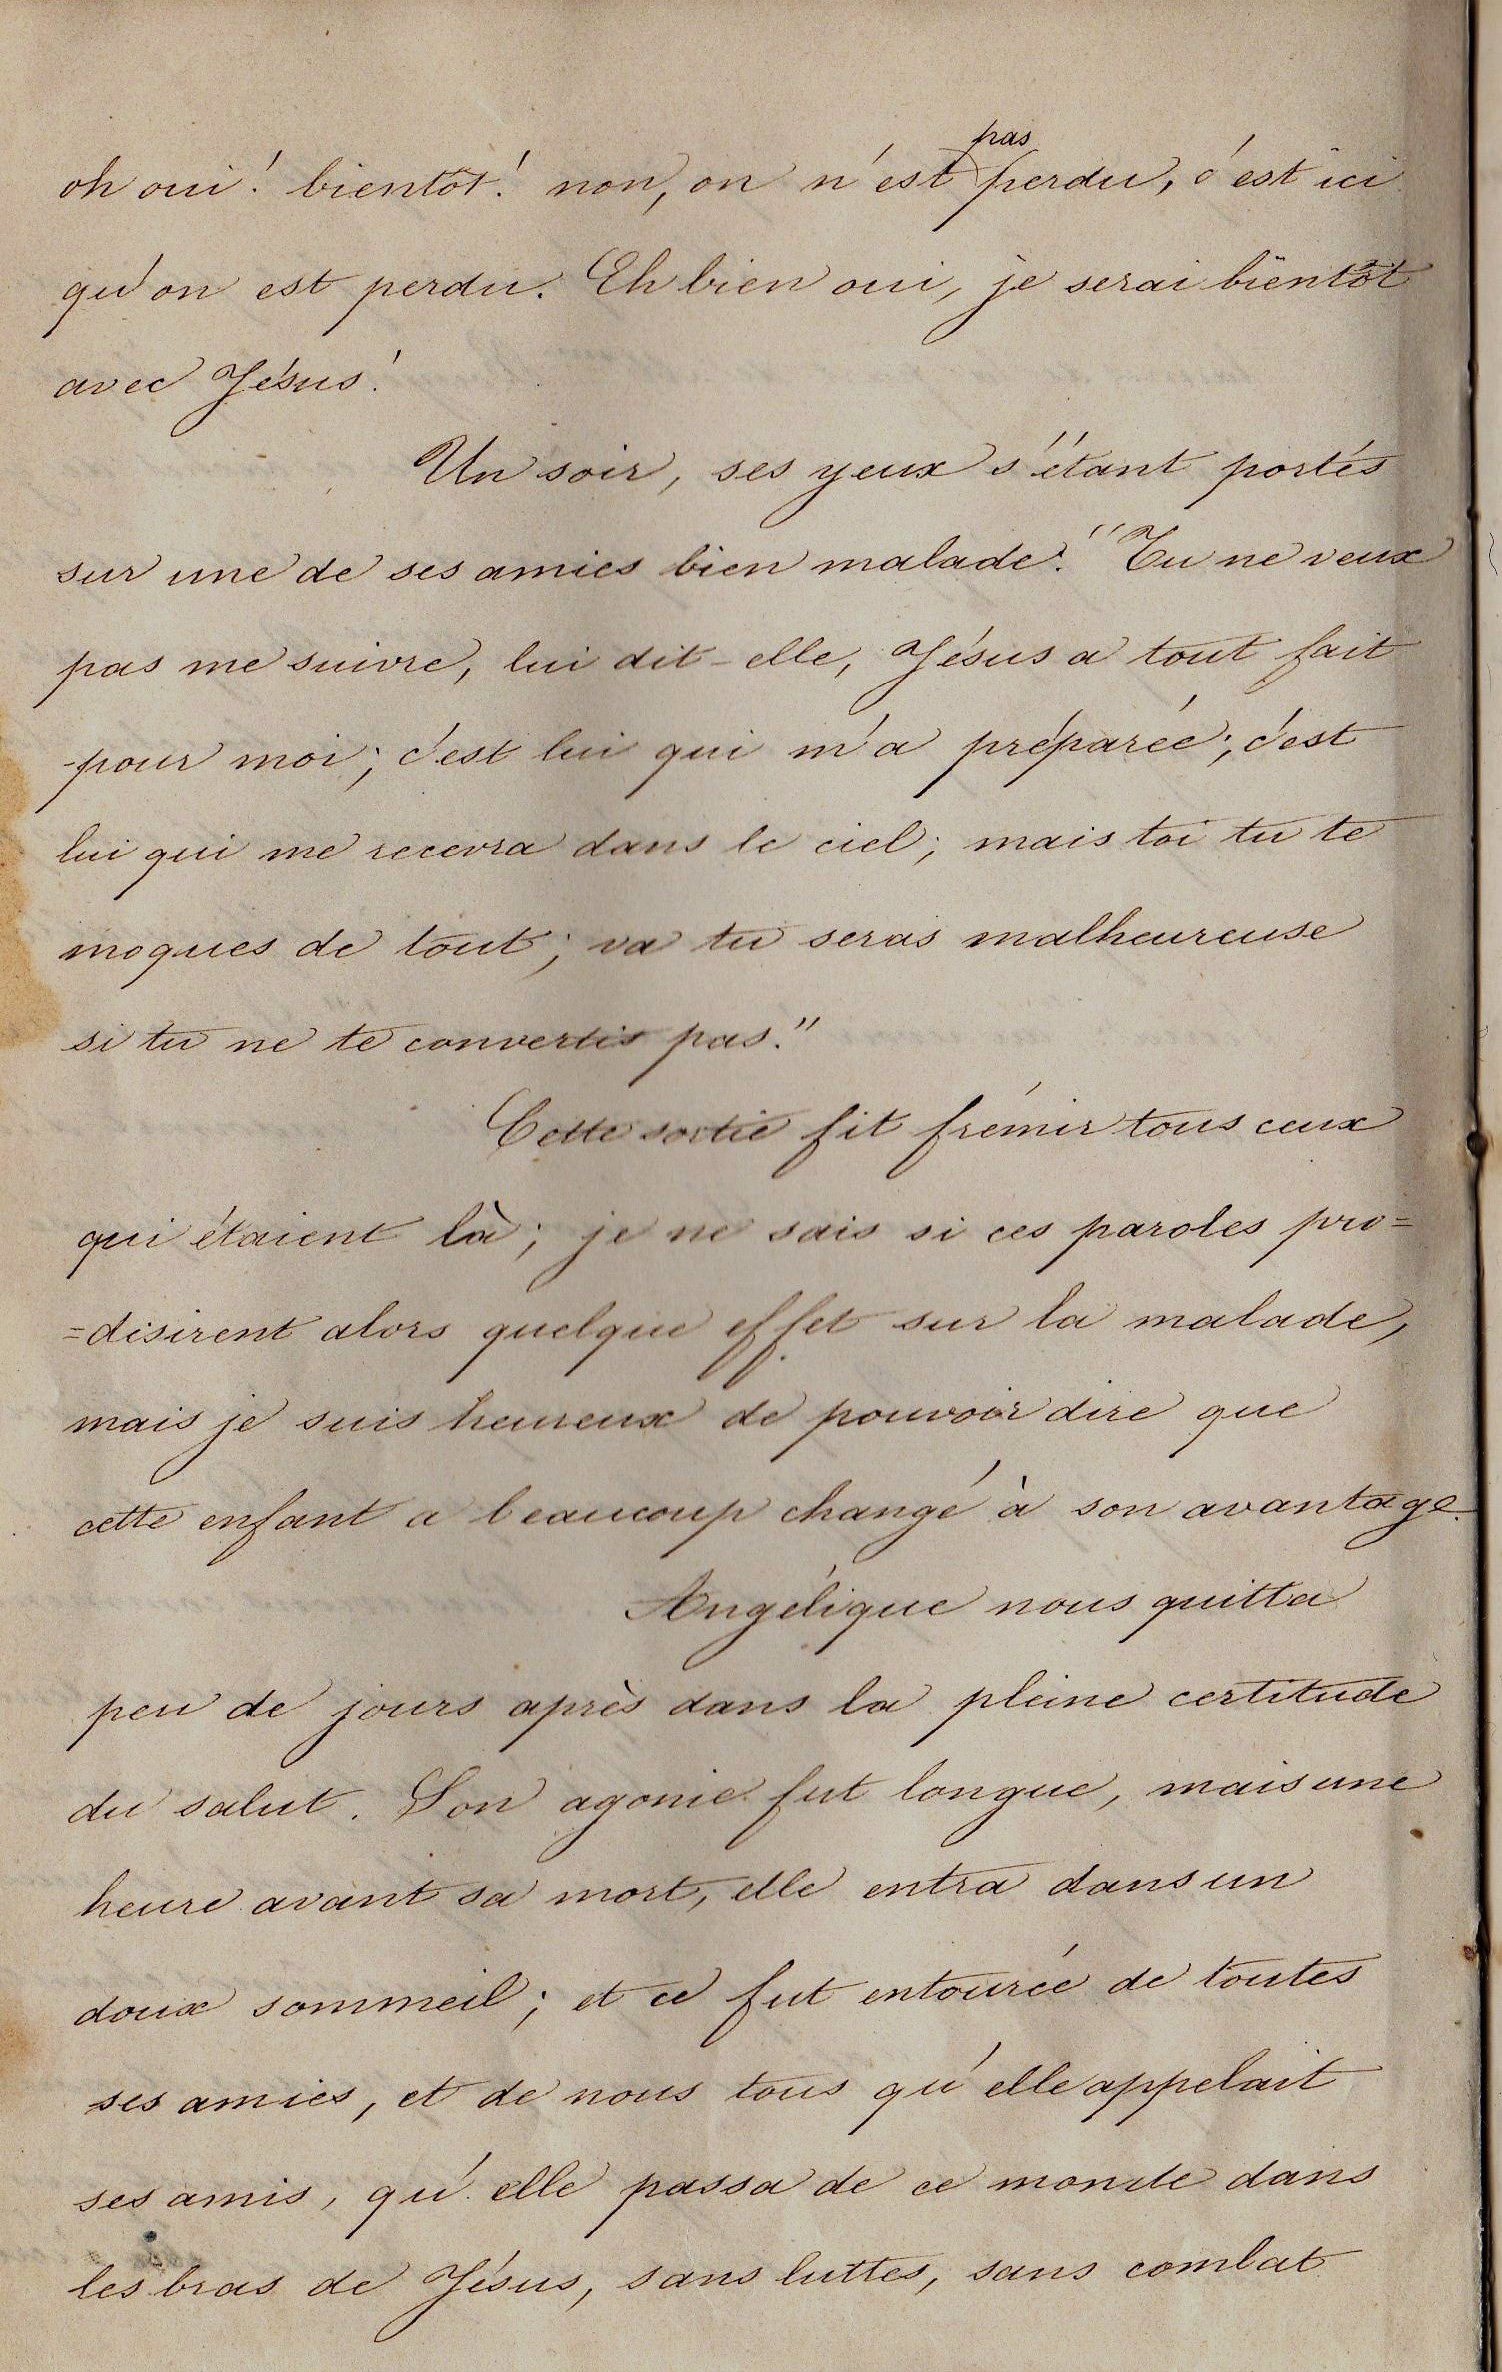 oh oui! bientôt! non, on n'est pas perdu, c'est ici
qu'on est perdu. Eh bien oui, je serai bientôt
avec Jésus!
Un soir, ses yeux s'étant portés
sur une de ses amies bien malade: "Tu ne veux
pas me suivre, lui dit-elle, Jésus a tout fait
pour moi; c'est lui qui m'a préparée; c'est
lui qui me recevra dans le ciel; mais toi tu te
moques de tout; va tu seras malheureuse
si tu ne te convertis pas."
Cette sortie fit frémir tous ceux
qui étaient là; je ne sais si ces paroles pro=
=disirent alors quelque effet sur la malade,
mais je suis heureux de pouvoir dire que
cette enfant a beaucoup changé à son avantage.
Angélique nous quitta
peu de jours après dans la pleine certitude
du salut. Son agonie fut longue, mais une
heure avant sa mort, elle entra dans un
doux sommeil; et ce fut entourée de toutes
ses amies, et de nous tous qu'elle appelait
ses amis, qu'elle passa de ce monde dans
les bras de Jésus, sans luttes, sans combat